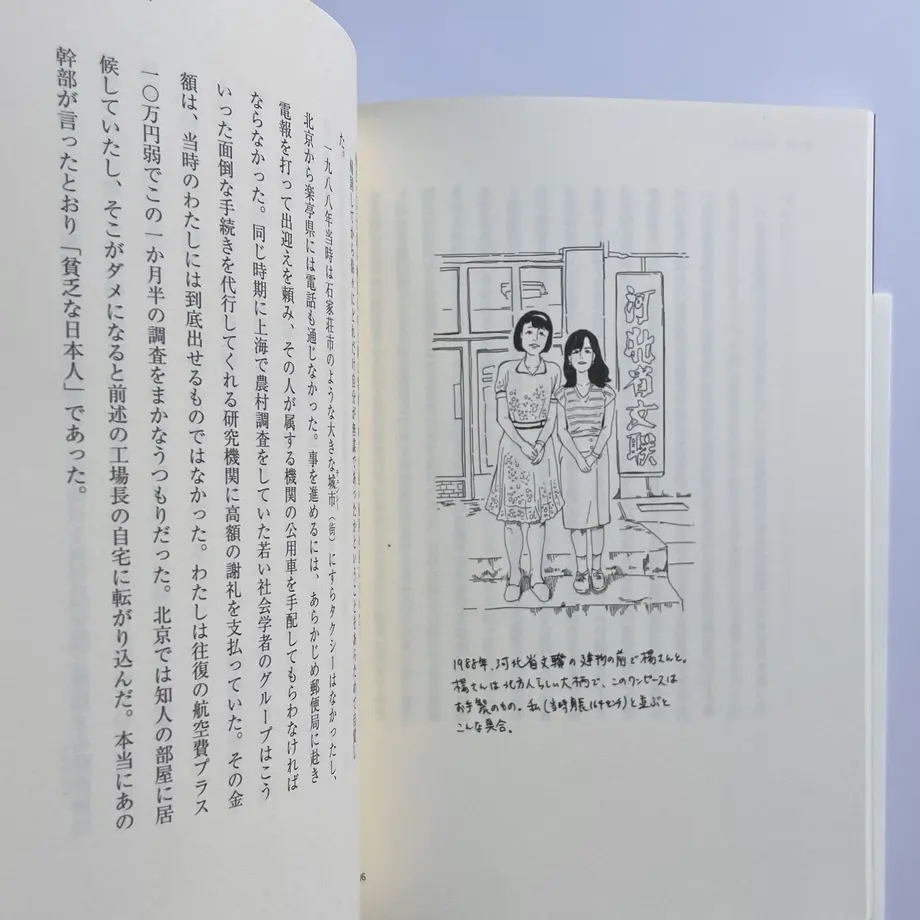 た。
一九八八年当時は石家荘市のような大きな城市（街）にすらタクシーはなかったし、
北京から楽亭県には電話も通じなかった。事を進めるには、あらかじめ郵便局に赴き
電報を打って出迎えを頼み、その人が属する機関の公用車を手配してもらわなければ
ならなかった。同じ時期に上海で農村調査をしていた若い社会学者のグループはこう
いった面倒な手続きを代行してくれる研究機関に高額の謝礼を支払っていた。その金
額は、当時のわたしには到底出せるものではなかった。わたしは往復の航空費プラス
一〇万円弱でこの一か月半の調査をまかなうつもりだった。北京では知人の部屋に居
候していたし、そこがダメになると前述の工場長の自宅に転がり込んだ。本当にあの
幹部が言ったとおり「貧乏な日本人」であった。
河北省文联
1988年、河北省文聯の建物の前で楊さんと。
楊さんは北方人らしい大柄で、このワンピースは
お手製のもの。私（当時身長
センチ）と並ぶと
こんな具合。